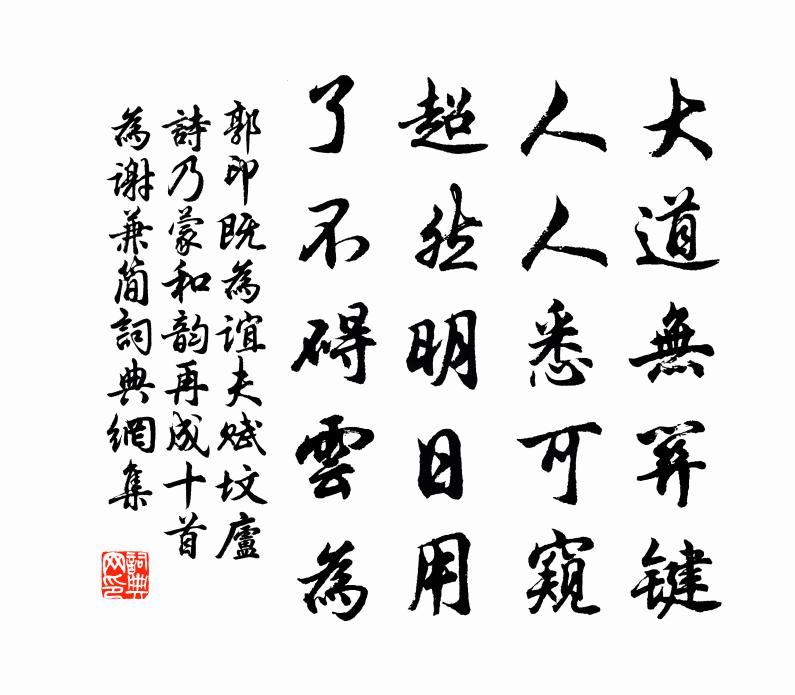 大道無關鍵
人人悉可窺
超然明日用
了不碍雲為
郭印既為誼夫賦墳廬
詩乃蒙和韵再成十首
為謝兼簡詞典網集
詞典網印